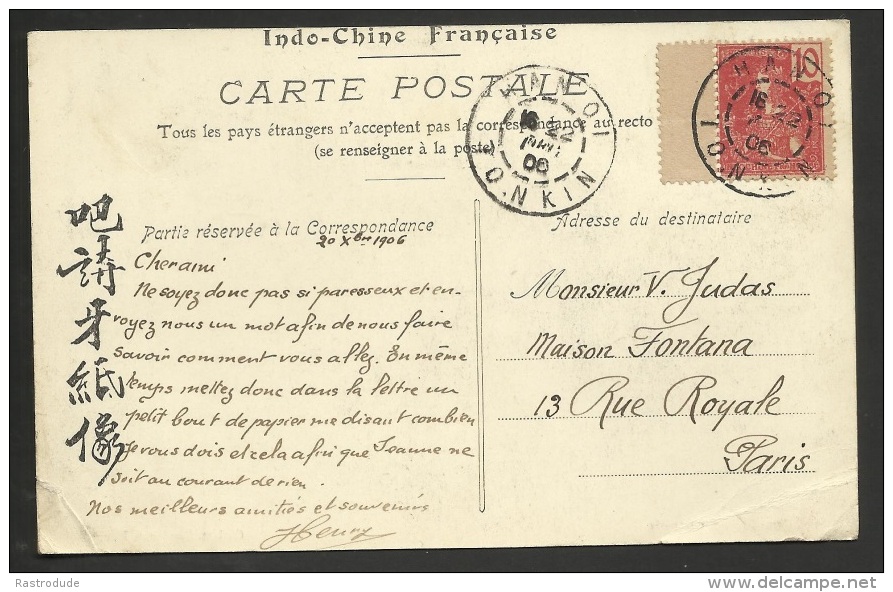 Indo-Chine Française
CARTE POSTALE
Tous les pays étrangers n'acceptent pas la correspondance au recto
(se renseigner à la poste)
HANOI
16 22
06
TONKIN
10
HANOI
16 22
06
TONKIN
吧請牙紙像
Partie réservée à la Correspondance
20 Xbre 1906
Cher ami
Ne soyez donc pas si paresseux et en-
voyez nous un mot afin de nous faire
savoir comment vous allez. En même
temps mettez donc dans la lettre un
petit bout de papier me disant combien
je vous dois et cela afin que Jeanne ne
soit au courant de rien.
Nos meilleurs amitiés et souvenirs
Henry
Adresse du destinataire
Monsieur V. Judas
Maison Fontana
13 Rue Royale
Paris
Rastrodude
delcampe.net